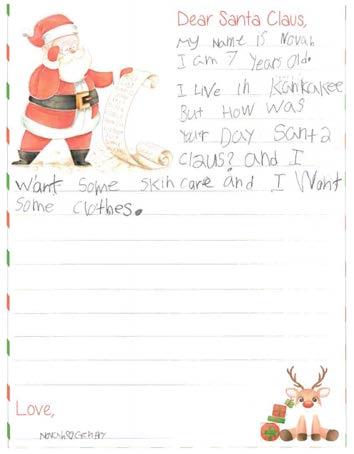 Dear Santa Claus,
My Name is Novah
I am 7 years old.
I Live in Kankakee
But How was
Your Day Santa
Claus? and I
Want some skincare and I Want
some clothes.
Love,
Novah